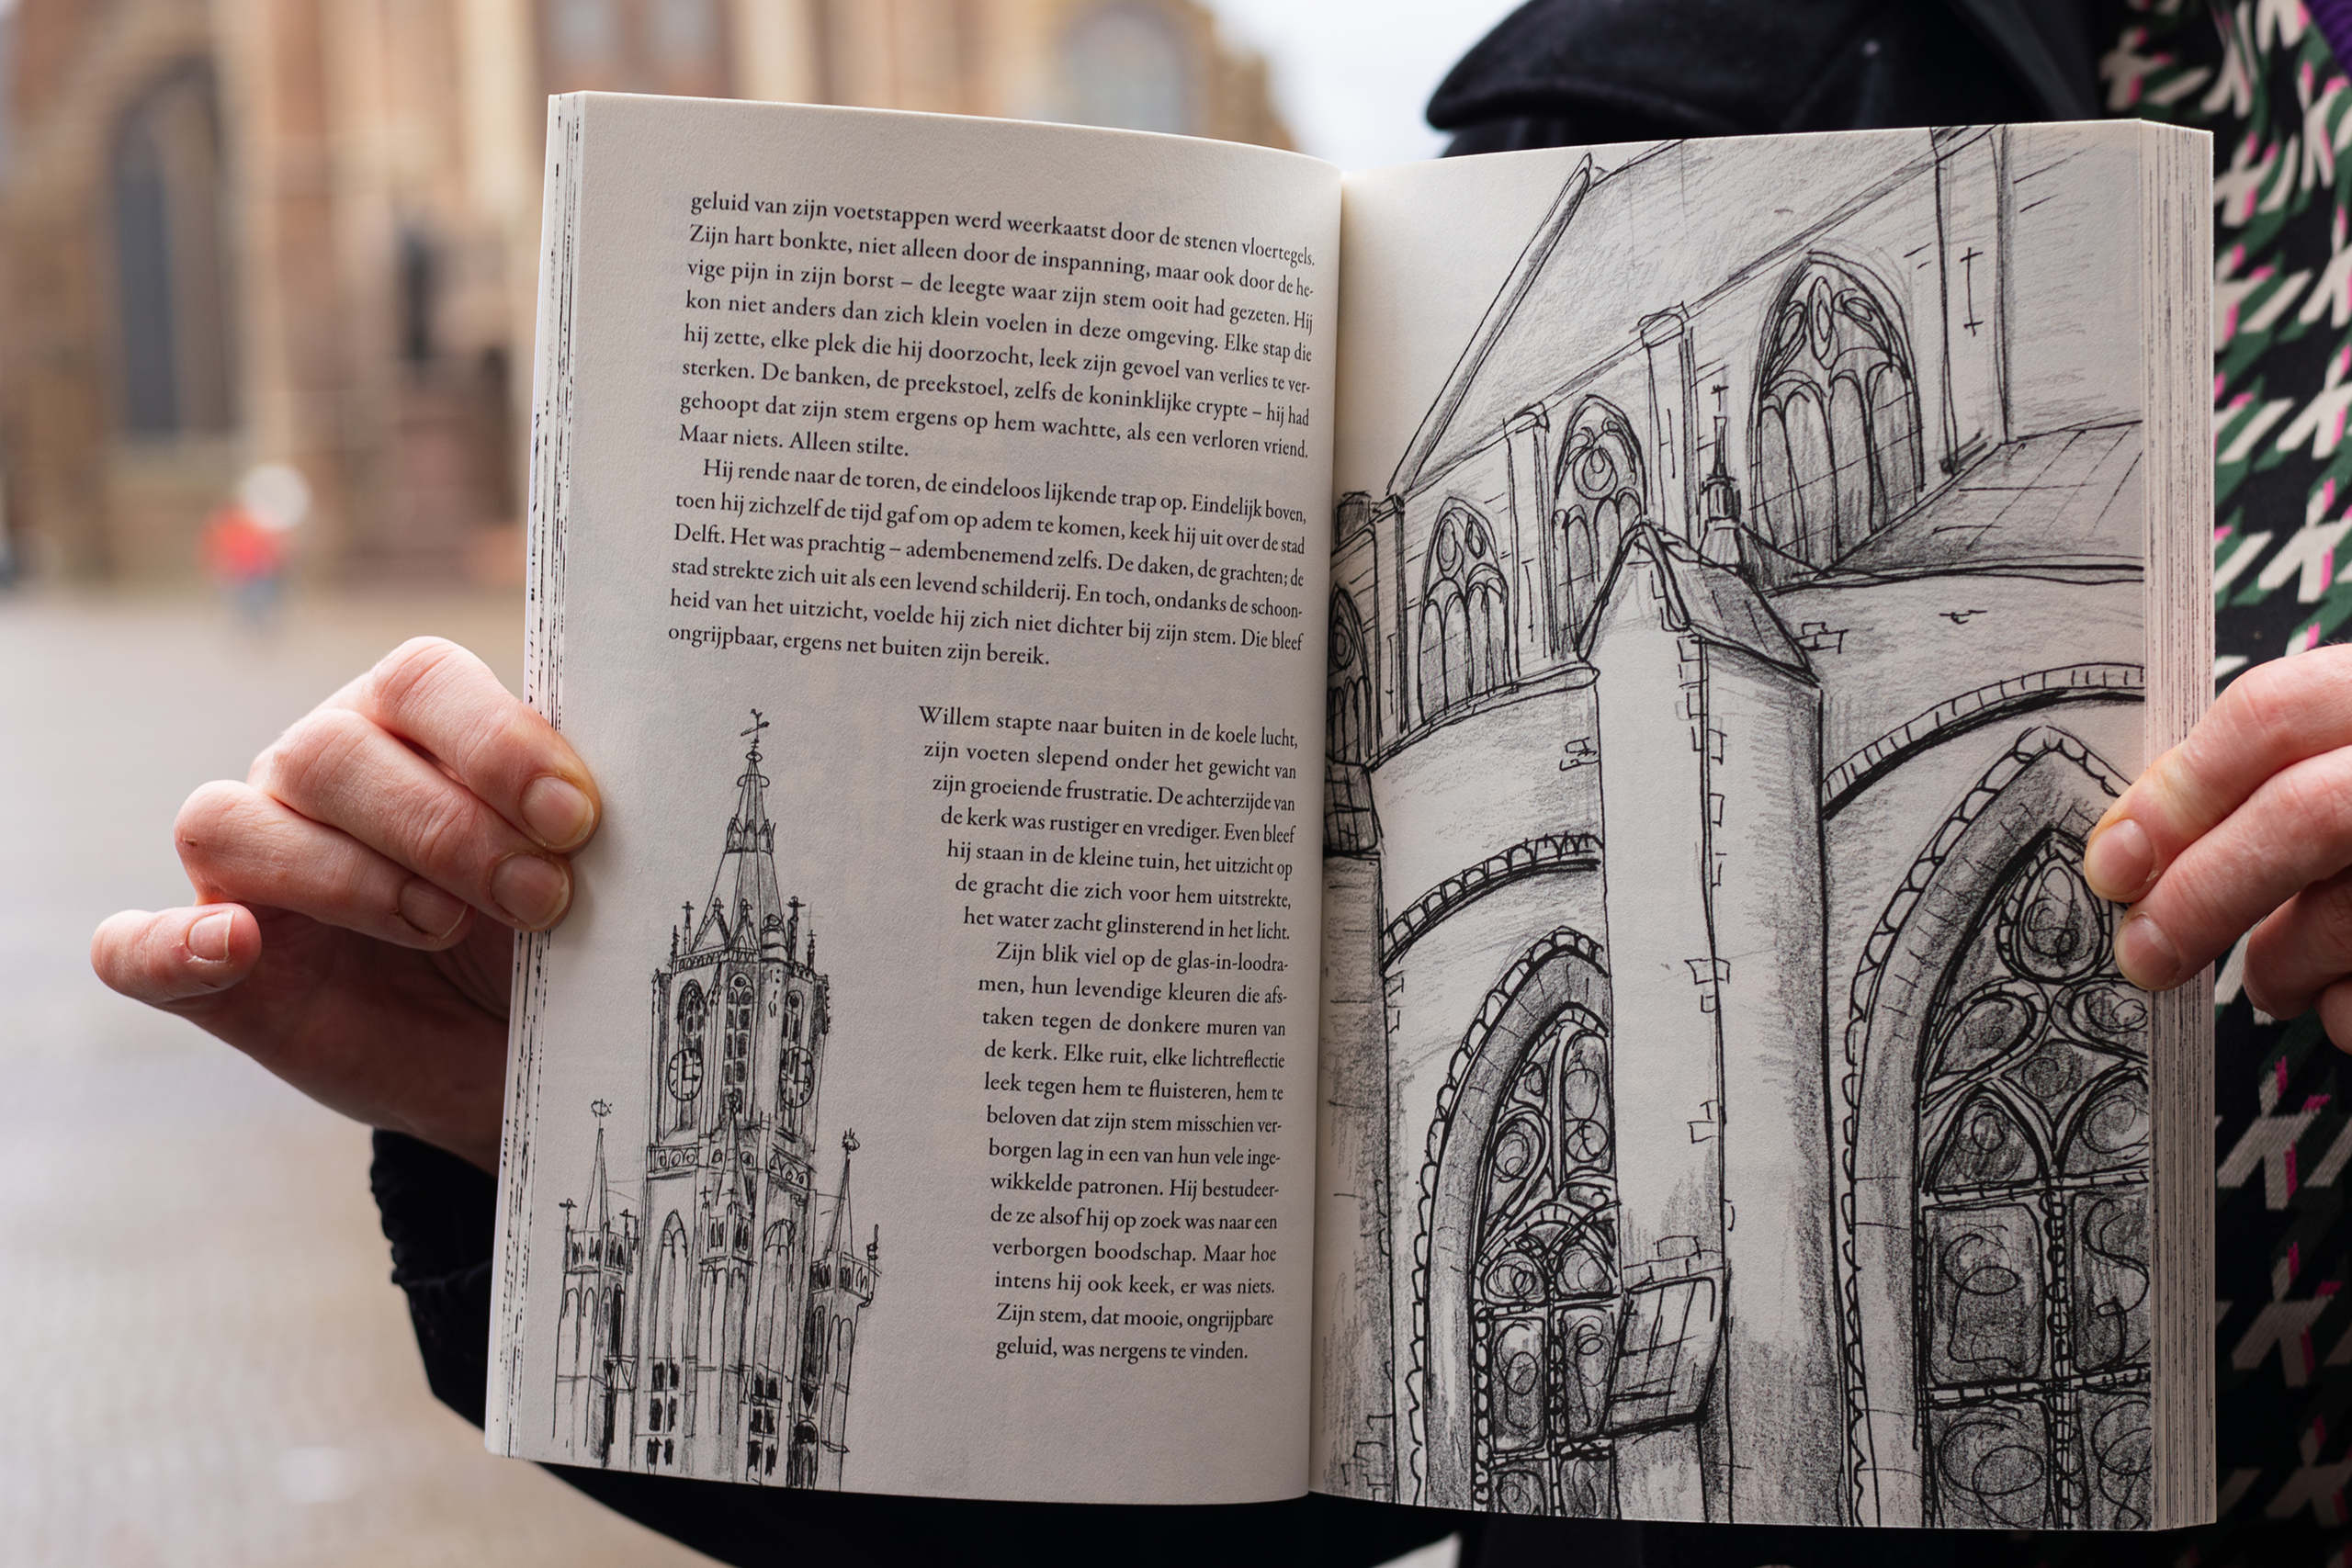 geluid van zijn voetstappen werd weerkaatst door de stenen vloertegels.
Zijn hart bonkte, niet alleen door de inspanning, maar ook door de he-
vige pijn in zijn borst – de leegte waar zijn stem ooit had gezeten. Hij
kon niet anders dan zich klein voelen in deze omgeving. Elke stap die
hij zette, elke plek die hij doorzocht, leek zijn gevoel van verlies te ver-
sterken. De banken, de preekstoel, zelfs de koninklijke crypte – hij had
gehoopt dat zijn stem ergens op hem wachtte, als een verloren vriend.
Maar niets. Alleen stilte.
Hij rende naar de toren, de eindeloos lijkende trap op. Eindelijk boven,
toen hij zichzelf de tijd gaf om op adem te komen, keek hij uit over de stad
Delft. Het was prachtig – adembenemend zelfs. De daken, de grachten; de
stad strekte zich uit als een levend schilderij. En toch, ondanks de schoon-
heid van het uitzicht, voelde hij zich niet dichter bij zijn stem. Die bleef
ongrijpbaar, ergens net buiten zijn bereik.
Willem stapte naar buiten in de koele lucht,
zijn voeten slepend onder het gewicht van
zijn groeiende frustratie. De achterzijde van
de kerk was rustiger en vrediger. Even bleef
hij staan in de kleine tuin, het uitzicht op
de gracht die zich voor hem uitstrekte,
het water zacht glinsterend in het licht.
Zijn blik viel op de glas-in-loodra-
men, hun levendige kleuren die afs-
taken tegen de donkere muren van
de kerk. Elke ruit, elke lichtreflectie
leek tegen hem te fluisteren, hem te
beloven dat zijn stem misschien ver-
borgen lag in een van hun vele inge-
wikkelde patronen. Hij bestudeer-
de ze alsof hij op zoek was naar een
verborgen boodschap. Maar hoe
intens hij ook keek, er was niets.
Zijn stem, dat mooie, ongrijpbare
geluid, was nergens te vinden.